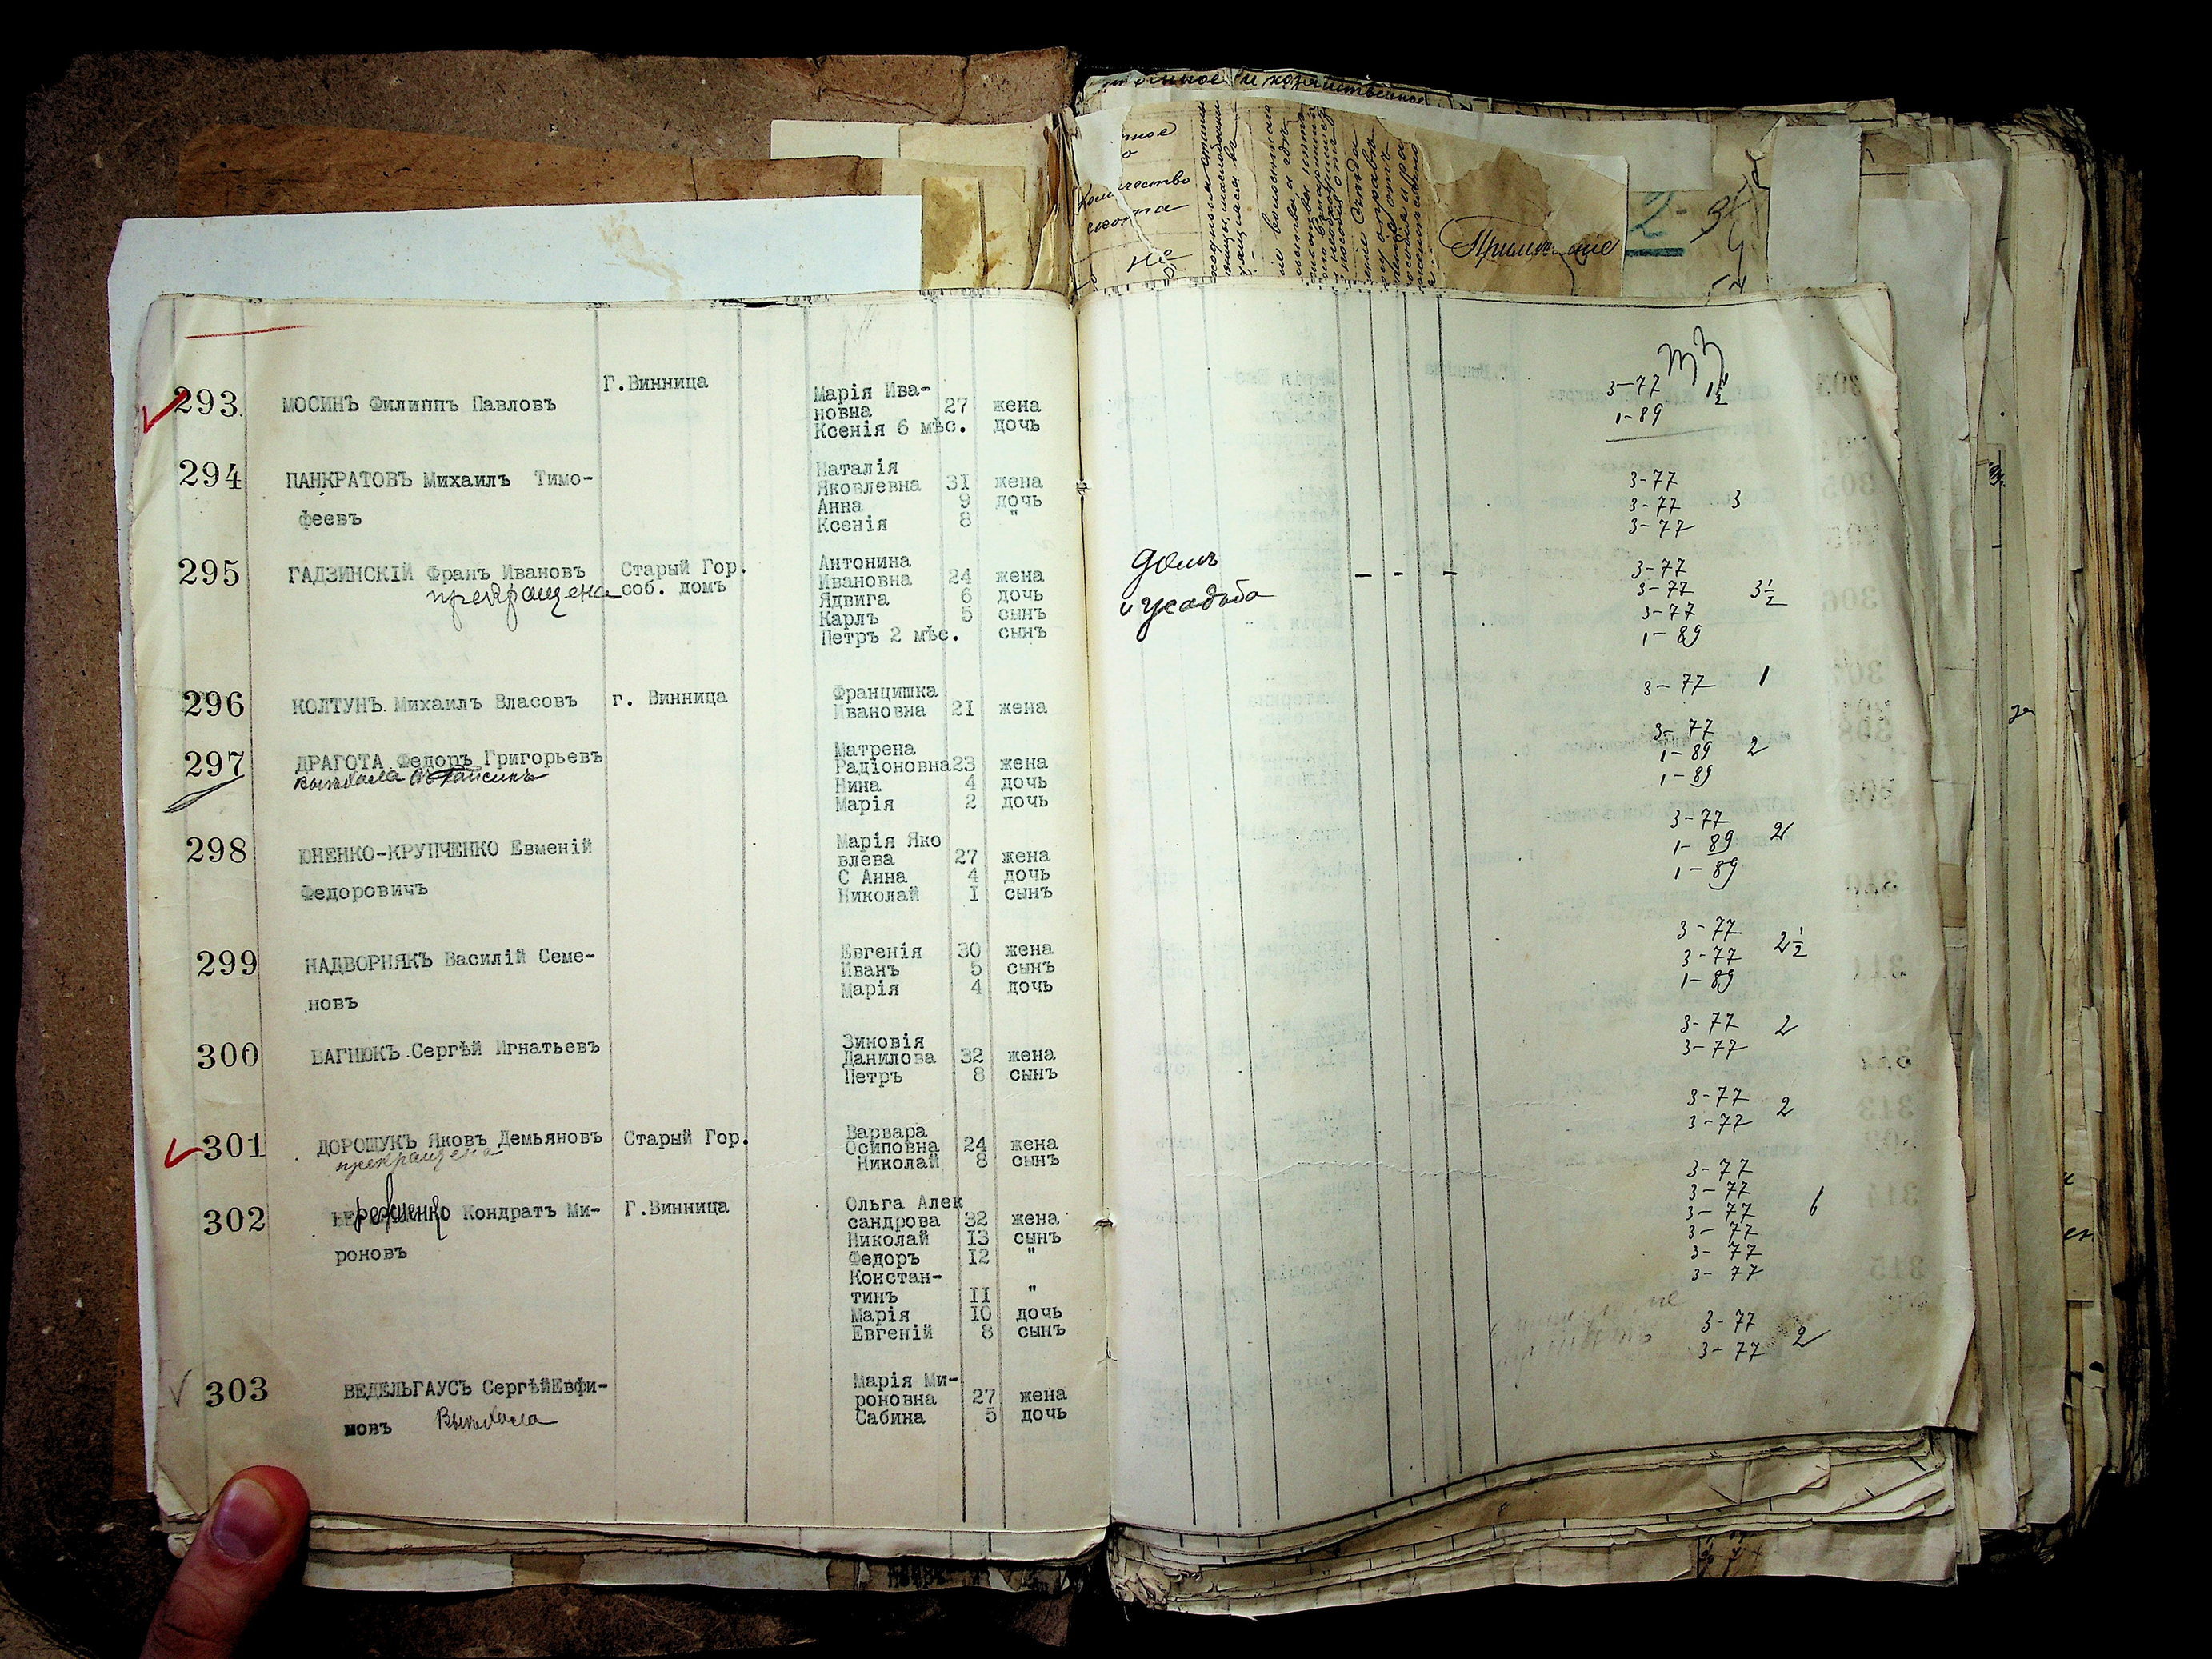 Примѣчаніе
2-
293. МОСИНЪ Филиппъ Павловъ Г.Винница Марія Ива-
новна 27 жена
Ксенія 6 мѣс. дочь
3-77 1½
1-89
294 ПАНКРАТОВЪ Михаилъ Тимо-
феевъ
Наталія
Яковлевна 31 жена
Анна 9 дочь
Ксенія 8 "
3-77
3-77 3
3-77
295 ГАДЗИНСКІЙ Франъ Ивановъ Старый Гор.
прекращена соб. домъ
Антонина
Ивановна 24 жена
Ядвига 6 дочь
Карлъ 5 сынъ
Петръ 2 мѣс. сынъ
домъ - - -
и усадьба
3-77
3-77 3½
3-77
1-89
296 КОЛТУНЪ Михаилъ Власовъ г. Винница Францишка
Ивановна 21 жена
3-77 1
297 ДРАГОТА Федоръ Григорьевъ
выѣхала
Матрена
Радіоновна 23 жена
Нина 4 дочь
Марія 2 дочь
3-77
1-89 2
1-89
298 ЮНЕНКО-КРУПЧЕНКО Евменій
Федоровичъ
Марія Яко
влева 27 жена
С Анна 4 дочь
Николай I сынъ
3-77
1-89 2
1-89
299 НАДВОРНЯКЪ Василій Семе-
новъ
Евгенія 30 жена
Иванъ 5 сынъ
Марія 4 дочь
3-77
3-77 2½
1-89
300 ВАГНЮКЪ Сергѣй Игнатьевъ
Зиновія
Данилова 32 жена
Петръ 8 сынъ
3-77 2
3-77
301 ДОРОЩУКЪ Яковъ Демьяновъ Старый Гор.
прекращена
Варвара
Осиповна 24 жена
Николай 8 сынъ
3-77 2
3-77
302 Кондратъ Ми- Г.Винница
роновъ
Ольга Алек
сандрова 32 жена
Николай I3 сынъ
Федоръ I2 "
Констан-
тинъ II "
Марія I0 дочь
Евгеній 8 сынъ
3-77
3-77
3-77 6
3-77
3-77
3-77
303 ВЕДЕЛЬГАУСЪ СергѣйЕвфи-
мовъ выѣхала
Марія Ми-
роновна 27 жена
Сабина 5 дочь
3-77
3-77 2